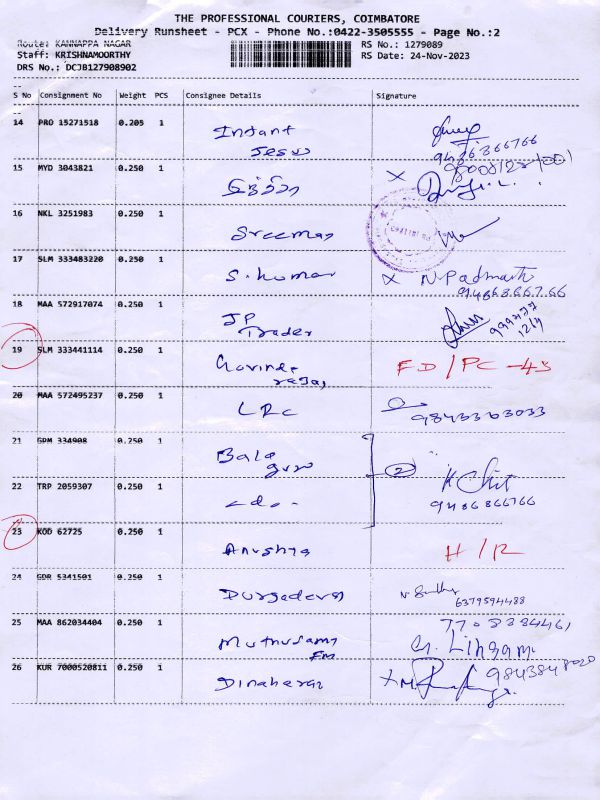 THE PROFESSIONAL COURIERS, COIMBATORE
Delivery Runsheet - PCX - Phone No.:0422-3505555 - Page No.:2
Route: KANNAPPA NAGAR
RS No.: 1279089
Staff: KRISHNAMOORTHY
RS Date: 24-Nov-2023
DRS No.: DCJB127908902
S No Consignment No Weight PCS Consignee Details Signature
14 PRO 15271518 0.205 1 Instant
Jesus
9486866766
15 MYD 3043821 0.250 1
16 NKL 3251983 0.250 1 Sreeman
17 SLM 333483220 0.250 1 S. Kumar X N. Padmavathi
18 MAA 572917074 0.250 1 JP
Trader
19 SLM 333441114 0.250 1 Govinda
rajas FD/PC-45
20 MAA 572495237 0.250 1 LRC 9843363033
21 GPM 334908 0.250 1 Bala
guru
2
22 TRP 2059307 0.250 1 -do-
9486866766
23 KOD 62725 0.250 1 Anushya H/R
24 GDR 5341501 0.250 1 Durgadevi
6379594488
25 MAA 862034404 0.250 1 Muthusamy
FM
7708384461
G. Lingam.
26 KUR 7000520811 0.250 1 Dinaharan X 9843848020